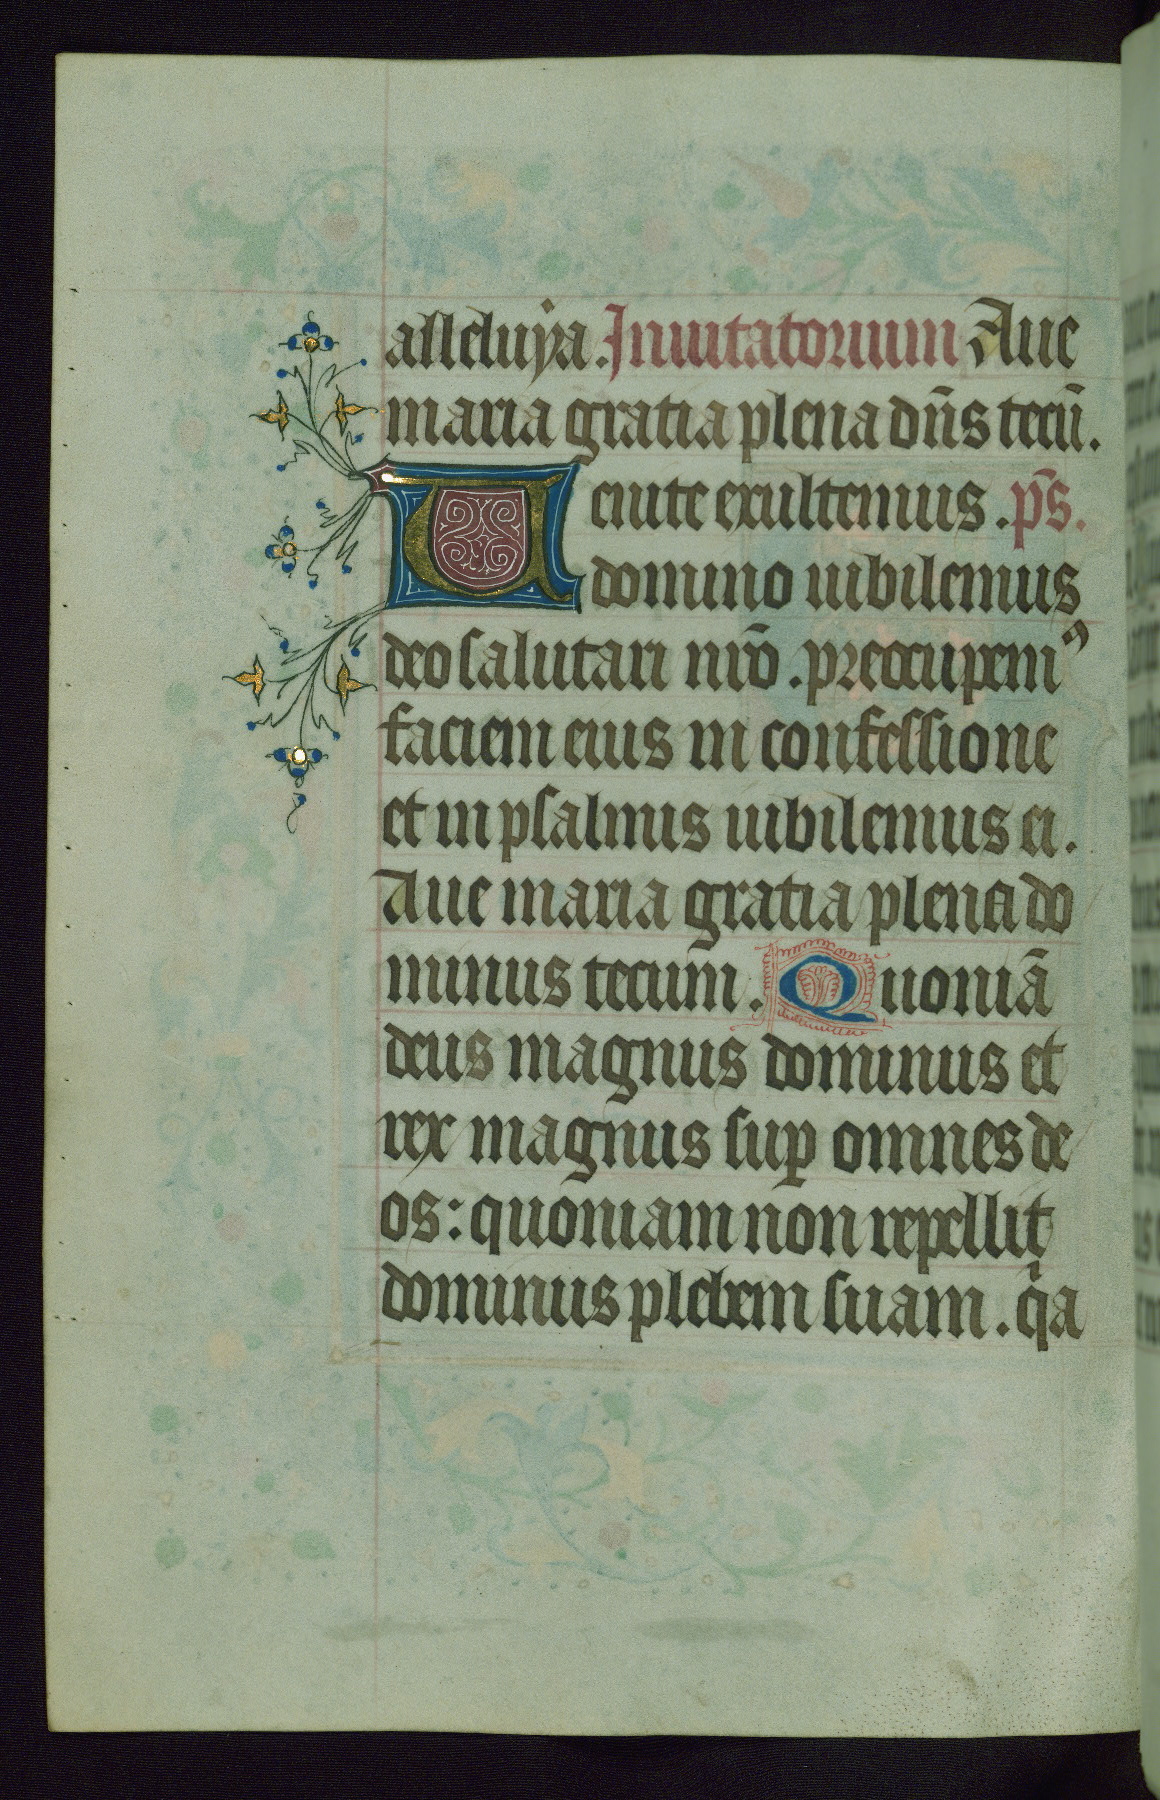 alleluya. Inuitatorium Aue
maria gratia plena dn̄s tecū.
Uenite exultemus. ps̄.
domino iubilemus
deo salutari nr̄o. preocupemꝰ
faciem eius in confessione
et in psalmis iubilemus ei.
Aue maria gratia plena do
minus tecum. Quoniā
deus magnus dominus et
rex magnus suꝑ omnes de
os: quoniam non repellit
dominus plebem suam. qͥa